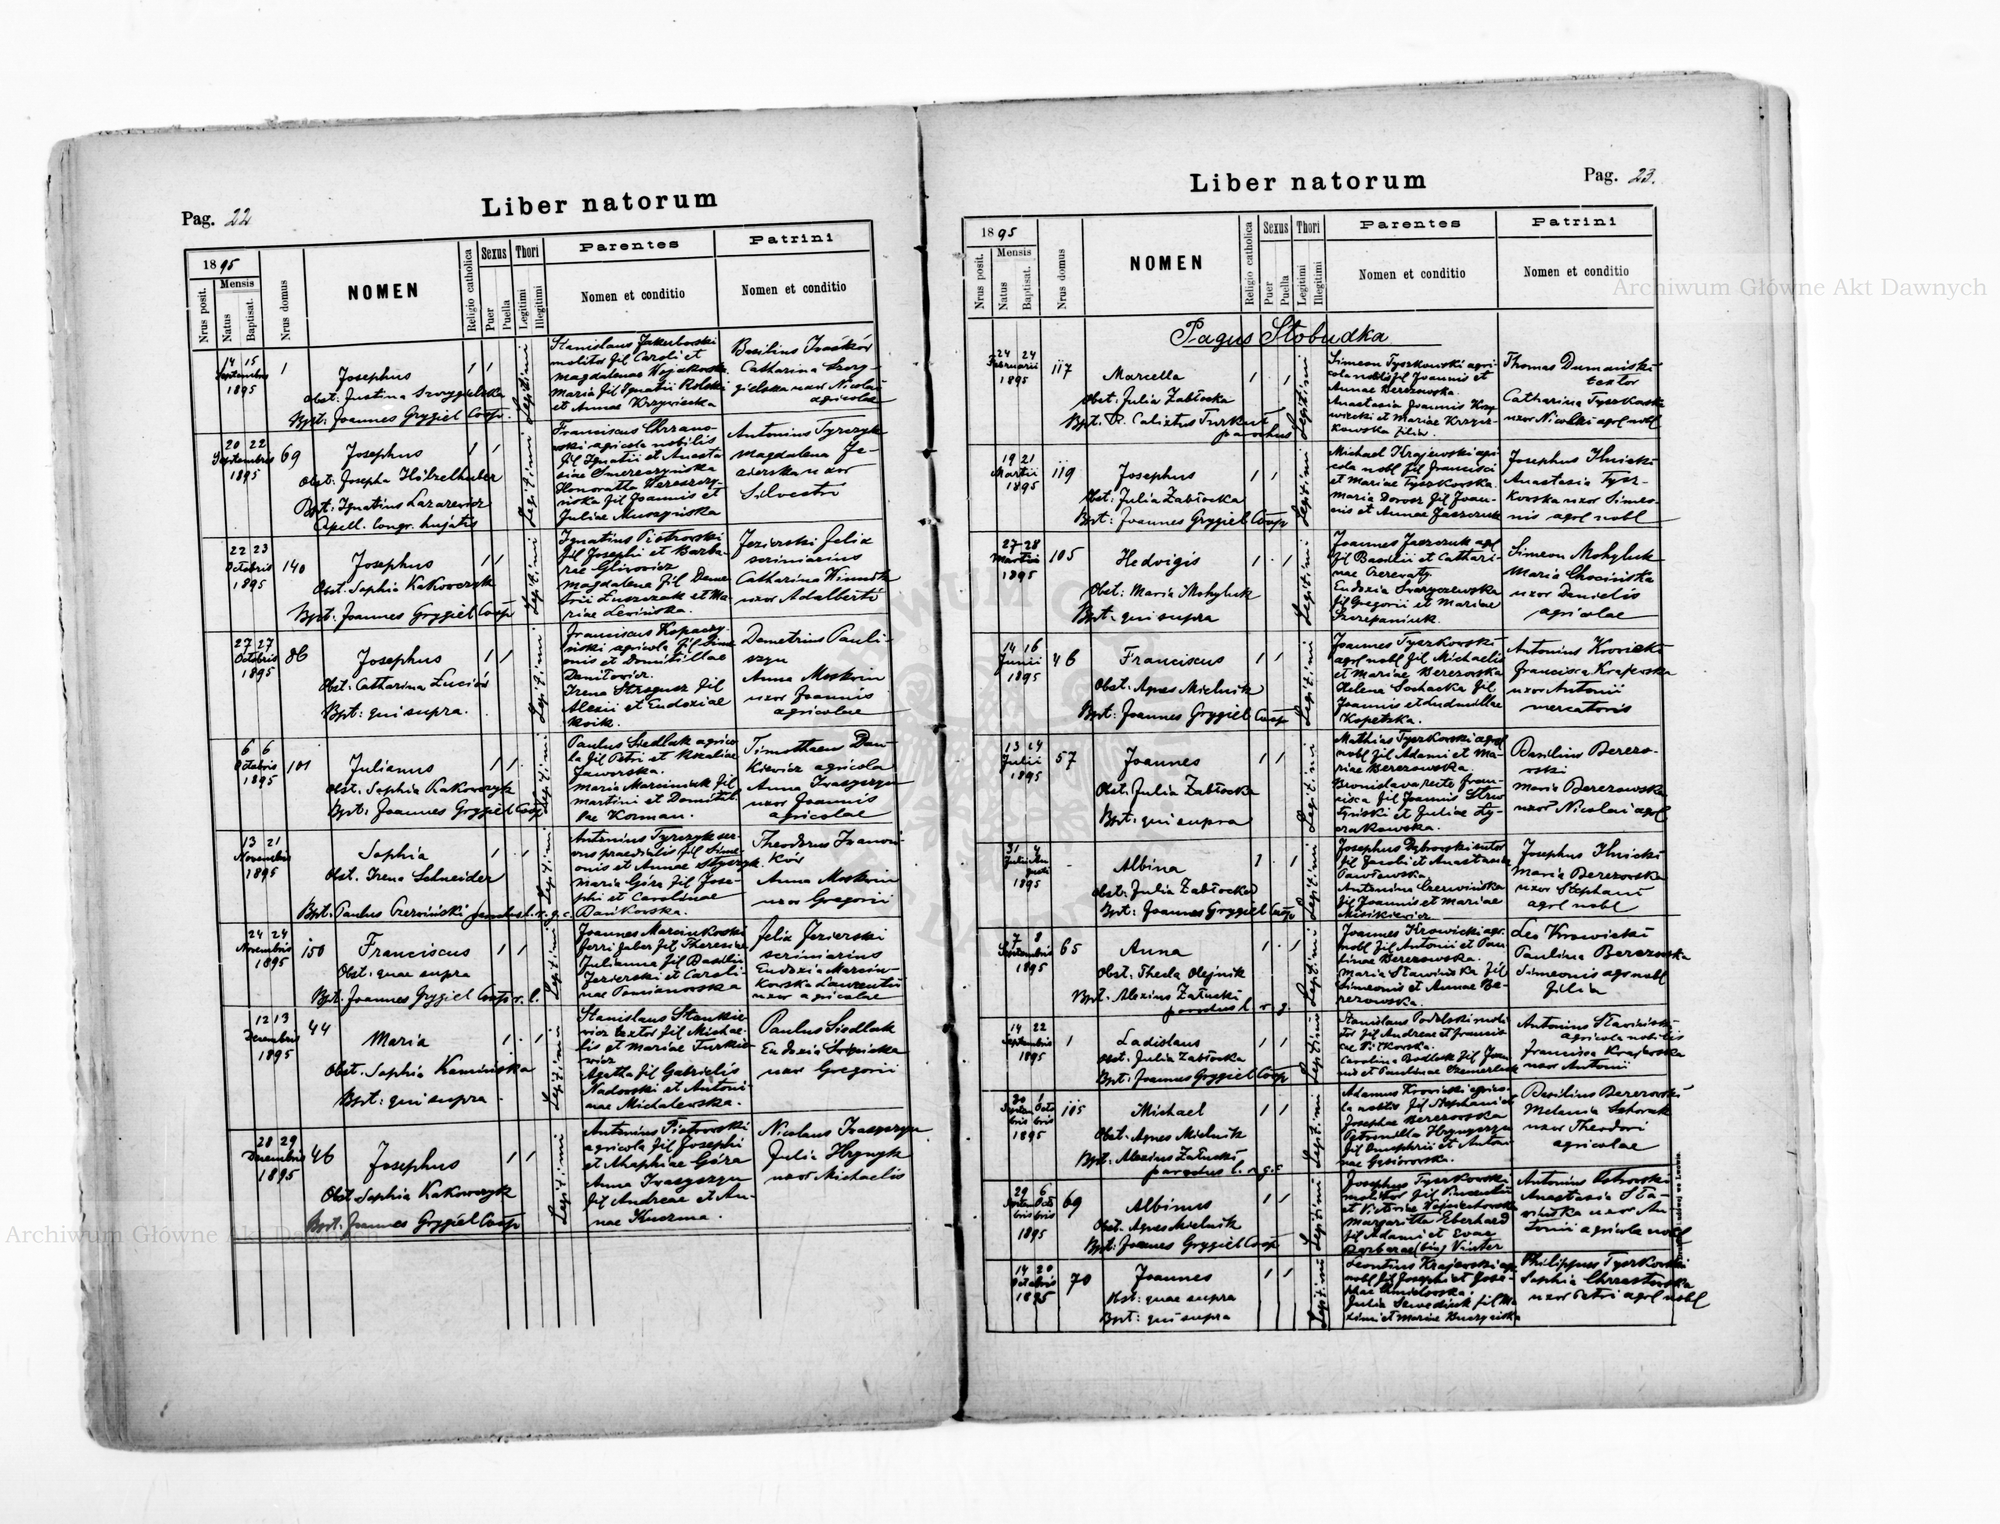 Pag. 22
Liber natorum
1895
Nrus posit.
Mensis
Natus
Baptisat.
Nrus domus
NOMEN
Religio catholica
Sexus
Puer
Puella
Thori
Legitimi
Illegitimi
Parentes
Nomen et conditio
Patrini
Nomen et conditio
14 15
Septembris
1895
1
Josephus
Obst: Justina
Bpt: Joannes Grygiel Coop.
1 1
Legitimi
Stanislaus
molitor fil Caroli et
Magdalenae
Maria fil Ignatii Rolski
et Annae Krzywicka
Basilius
Catharina
uxor Nicolai
agricolae
20 22
Septembris
1895
69
Josephus
Obst: Josepha Hölzelhuber
Bpt: Ignatius Lazarewicz
Capell. congr. hujatis
1 1
Legitimi
Franciscus Chrzano-
wski agricola nobilis
fil Ignatii et Anasta
siae
Honoratta
fil Joannis et
Juliae Muszyńska
Antonius Tyrczyk
Magdalena Je-
zierska uxor
Silvestri
22 23
Octobris
1895
140
Josephus
Obst. Sophia Kakowczyk
Bpt: Joannes Grygiel Coop
1 1
Legitimi
Ignatius Piotrowski
fil Josephi et Barba-
rae
Magdalena fil Deme
trii Łuszczak et Ma-
riae Lewińska.
Jezierski Felix
scriniarius
Catharina
uxor Adalberti
27 27
Octobris
1895
86
Josephus
Obst: Catharina
Bpt: qui supra.
1 1
Legitimi
Franciscus Kopaczy-
ński agricola fil Sime
onis et Domitillae
Danilowicz.
Irena fil
Alexii et Eudoxiae
Demetrius Pauli-
szyn
Anna Moskwin
uxor Joannis
agricolae
6 6
Octobris
1895
101
Julianus
Obst. Sophia Kakowczyk
Bpt: Joannes Grygiel Coop
1 1
Legitimi
Paulus Siedlak agrico
la fil Petri et Rozaliae
Jaworska.
Maria Marciniuk fil
Martini et Domitil-
lae Korman.
Timotheus Dan-
kiewicz agricola
Anna Iwaszczyn
uxor Joannis
agricolae
13 21
Novembris
1895
Sophia
Obst. Irena Schneider
Bpt. Paulus Czerwiński parochus l. r. g. c.
1 1
Legitimi
Antonius Tyrczyk ser-
vus praedialis fil Sime-
onis et Annae
Maria Góra fil Jose-
phi et Carolinae
Bańkowska.
Theodorus
Anna Moskwin
uxor Gregorii
24 24
Novembris
1895
150
Franciscus
Obst: quae supra
Bpt. Joannes Grygiel Coop r. l.
1 1
Legitimi
Joannes Marcinkowski
ferri faber fil Theresiae
Julianna fil Basilii
Jezierski et Caroli-
nae Pomianowska
Felix Jezierski
scriniarius
Eudoxia Marcin-
kowska Laurentii
uxor agricolae
12 13
Decembris
1895
44
Maria
Obst. Sophia Kamińska
Bpt: qui supra
1 1
Legitimi
Stanislaus Stankie-
wicz textor fil Michae-
lis et Mariae Turkie-
wicz
Agatha fil Gabrielis
Nadowski et Antoni-
nae Michalewska.
Paulus Siedlak
Eudoxia
uxor Gregorii
28 29
Decembris
1895
46
Josephus
Obst. Sophia Kakowczyk
Bpt. Joannes Grygiel Coop
1 1
Legitimi
Antonius Piotrowski
agricola fil Josephi
et Agaphiae Góra
Anna Iwaszczyn
fil Andreae et An-
nae Kuczma.
Nicolaus Iwaszczyn
Julia Hrynyk
uxor Michaelis
Liber natorum
Pag. 23.
1895
Nrus posit.
Mensis
Natus
Baptisat.
Nrus domus
NOMEN
Religio catholica
Sexus
Puer
Puella
Thori
Legitimi
Illegitimi
Parentes
Nomen et conditio
Patrini
Nomen et conditio
Pagus Słobudka
24 24
Februarii
1895
117
Marcella
Obst: Julia Zabłocka
Bpt. R. Calixtus Turkuł
parochus
1 1
Legitimi
Simeon Tyszkowski agri-
cola nobilis fil Joannis et
Annae Berezowska.
Anastasia Joannis
et Mariae
filia.
Thomas Dumański
textor
Catharina Tyszkowska
uxor Nicolai agrl nobl
19 21
Martii
1895
119
Josephus
Obst: Julia Zabłocka
Bpt: Joannes Grygiel Coop
1 1
Legitimi
Michael Krajewski agri
cola nobl fil Francisci
et Mariae Tyszkowska.
Maria Dorosz fil Joan-
nis et Annae Jaszczuk
Josephus Ilnicki
Anastasia Tysz-
kowska uxor Simeo-
nis agrl nobl
27 28
Martii
1895
105
Hedvigis
Obst: Maria Mohyluk
Bpt: qui supra
1 1
Legitimi
Joannes Jaszczuk agrl
fil Basilii et Cathari-
nae
Eudoxia
fil Gregorii et Mariae
Szczepaniuk.
Simeon Mohyluk
Maria Chocińska
uxor Danielis
agricolae
14 16
Junii
1895
46
Franciscus
Obst: Agnes Mielnik
Bpt: Joannes Grygiel Coop
1 1
Legitimi
Joannes Tyszkowski
agrl nobl fil Michaelis
et Mariae Berezowska
Helena Sochacka fil
Joannis et Ludmillae
Kopetzka.
Antonius Krowicki
Francisca Krajewska
uxor Antonii
mercatoris
13 14
Julii
1895
57
Joannes
Obst. Julia Zabłocka
Bpt: qui supra
1 1
Legitimi
Mathias Tyszkowski agrl
nobl fil Adami et Ma-
riae Berezowska.
Bronislava recte Fran-
cisca fil Joannis
et Juliae
Basilius Berezo-
wski
Maria Berezowska
uxor Nicolai agrl
31 4
Julii Au
gusti
1895
-
Albina
Obst: Julia Zabłocka
Bpt: Joannes Grygiel Coop
1 1
Legitimi
Josephus Dąbrowski sutor
fil Jacobi et Anastasiae
Pawłowska.
Antonina Czerwińska
fil Joannis et Mariae
Misikiewicz
Josephus Ilnicki
Maria Berezowska
uxor Stephani
agrl nobl
7 8
Septembris
1895
65
Anna
Obst: Thecla Olejnik
Bpt. Alexius Załucki
parochus l. r. g.
1 1
Legitimi
Joannes Krowicki agr.
nobl fil Antonii et Pau
linae Berezowska.
Maria Stawińska fil
Simeonis et Annae Be-
rezowska.
Leo Krowicki
Paulina Berezowska
Simeonis agr nobl
filia
14 22
Septembris
1895
1
Ladislaus
Obst: Julia Zabłocka
Bpt: Joannes Grygiel Coop
1 1
Legitimi
Stanislaus Podolski moli
tor fil Andreae et Francis
cae
Carolina fil Joan
nis et Paulinae
Antonius Stawiński
agricola nobilis
Francisca Krajewska
uxor Antonii
30 1
Septem Octo
bris bris
1895
115
Michael
Obst: Agnes Mielnik
Bpt: Alexius Załucki
parochus l. r. g. c
1 1
Legitimi
Adamus Krowicki agrico-
la nobilis fil Stephani et
Josephae Berezowska
Petronella Hrynyszyn
fil Onuphrii et Antoni
nae Gąsiorowska.
Basilius Berezowski
Melania
uxor Theodori
agricolae
29 6
Septem Octo
bris bris
1895
69
Albinus
Obst: Agnes Mielnik
Bpt: Joannes Grygiel Coop
1 1
Legitimi
Josephus Tyszkowski
molitor fil Vincentii
et Victoriae Wojciechowska
Margaritha Eberhard
fil Adami et Evae
Barbarae (bin) Vinter
Antonius Ostrowski
Anastasia Sta-
wińska uxor An
tonii agricola nobl
14 20
Octobris
1895
70
Joannes
Obst: quae supra
Bpt: qui supra
1 1
Legitimi
Leontius Krajewski agr
nobl fil Josephi et Jose-
phae
Julia fil Ma
ximi et Mariae Kuczyńska
Philippus Tyszkowski
Sophia Chrzastowska
uxor Petri agrl nobl
Archiwum Główne Akt Dawnych
Archiwum Główne Akt Dawnych